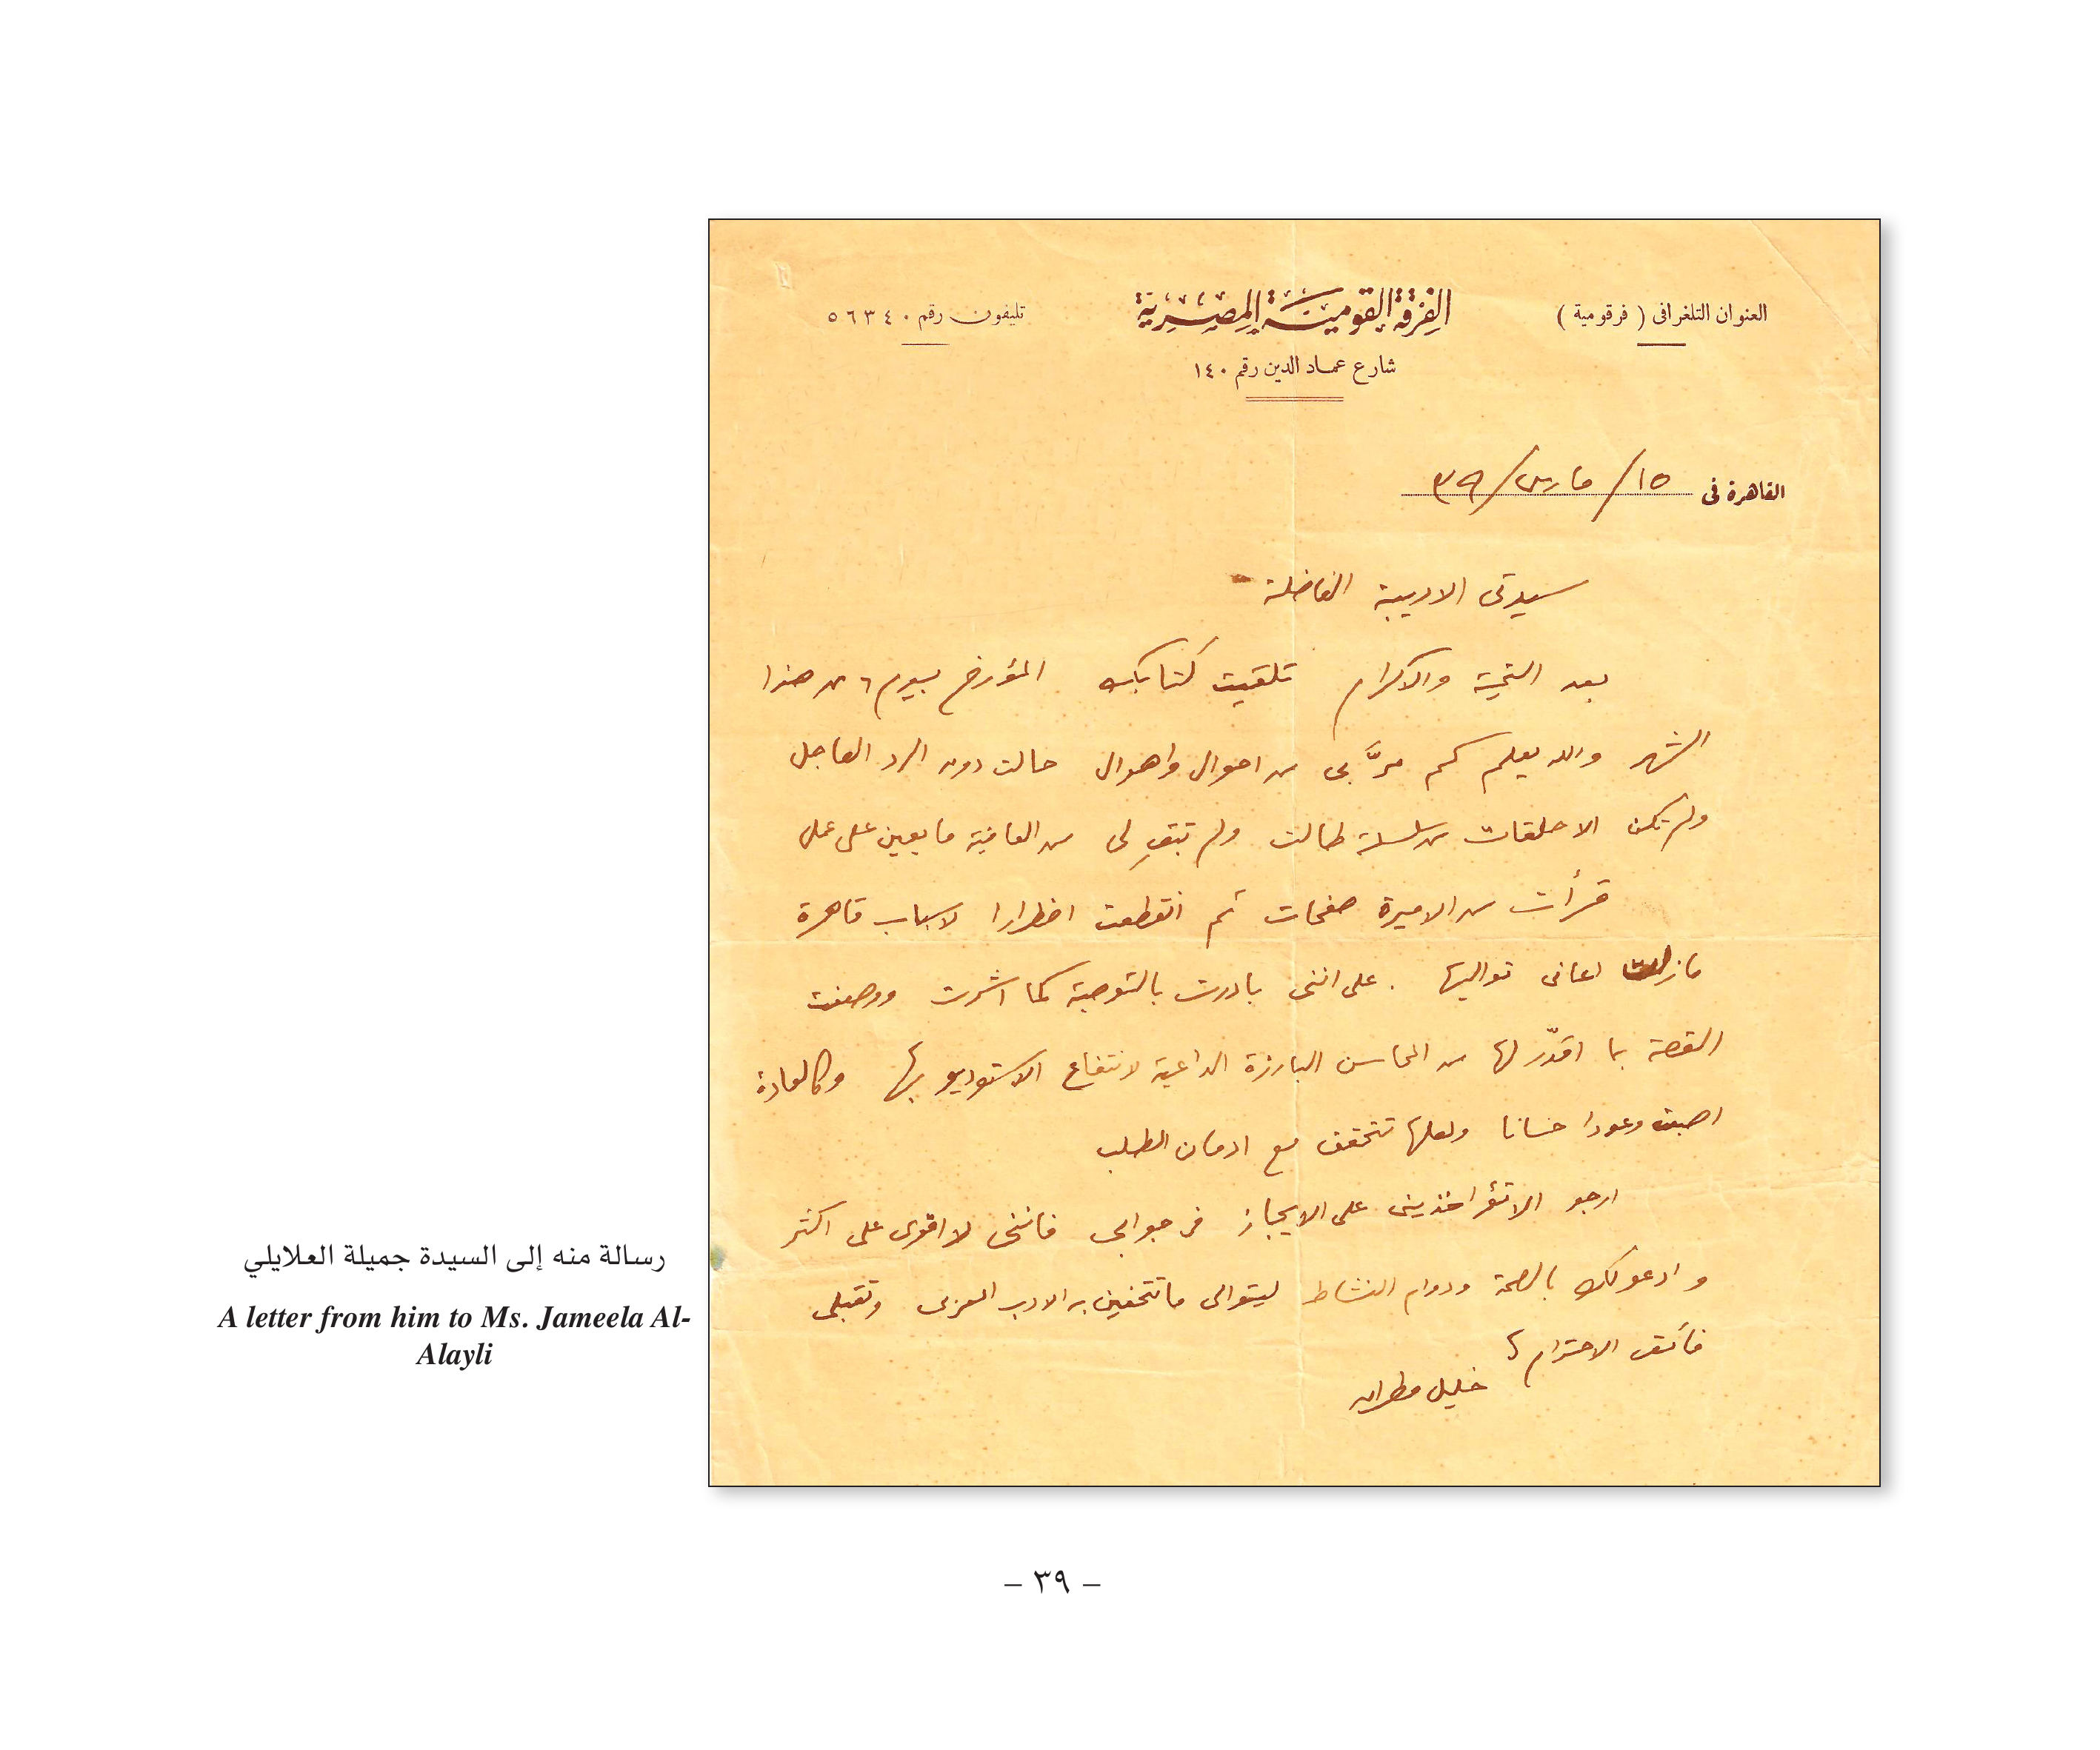 العنوان التلغرافى ( فرقومية )
الفرقة القومية المصرية
تليفون رقم ٥٦٣٤٠
شارع عماد الدين رقم ١٤٠
القاهرة فى ١٥/ مارس/ ٣٩
سيدتى الاديبة الفاضلة
بعد التحية والاكرام تلقيت كتابك المؤرخ بيوم ٦ من هذا
الشهر والله يعلم كم مرَّ بى من احوال واهوال حالت دون الرد العاجل
ولم تكن الا حلقات من سلسلة طالت ولم تبقِ لى من العافية ما يعين على عمل
قرأت من الاميرة صفحات ثم انقطعت اضطرارا لاسباب قاهرة
مازلت اعانى تواليها . على اننى بادرت بالتوصية كما اشرت ووصفت
القصة بما اقدّر لها من المحاسن البارزة الداعية لانتفاع الاستوديو بها وكالعادة
اصبت وعودا حسانا ولعلها تتحقق مع ادمان الطلب
ارجو الا تؤاخذينى على الايجاز فى جوابى فاننى لا اقوى على اكثر
وادعو لك بالصحة ودوام النشاط ليتوالى ما تتحفين به الادب العربى وتقبلى
فائق الاحترام
خليل مطران
رسالة منه إلى السيدة جميلة العلايلي
A letter from him to Ms. Jameela Al-
Alayli
– ٣٩ –